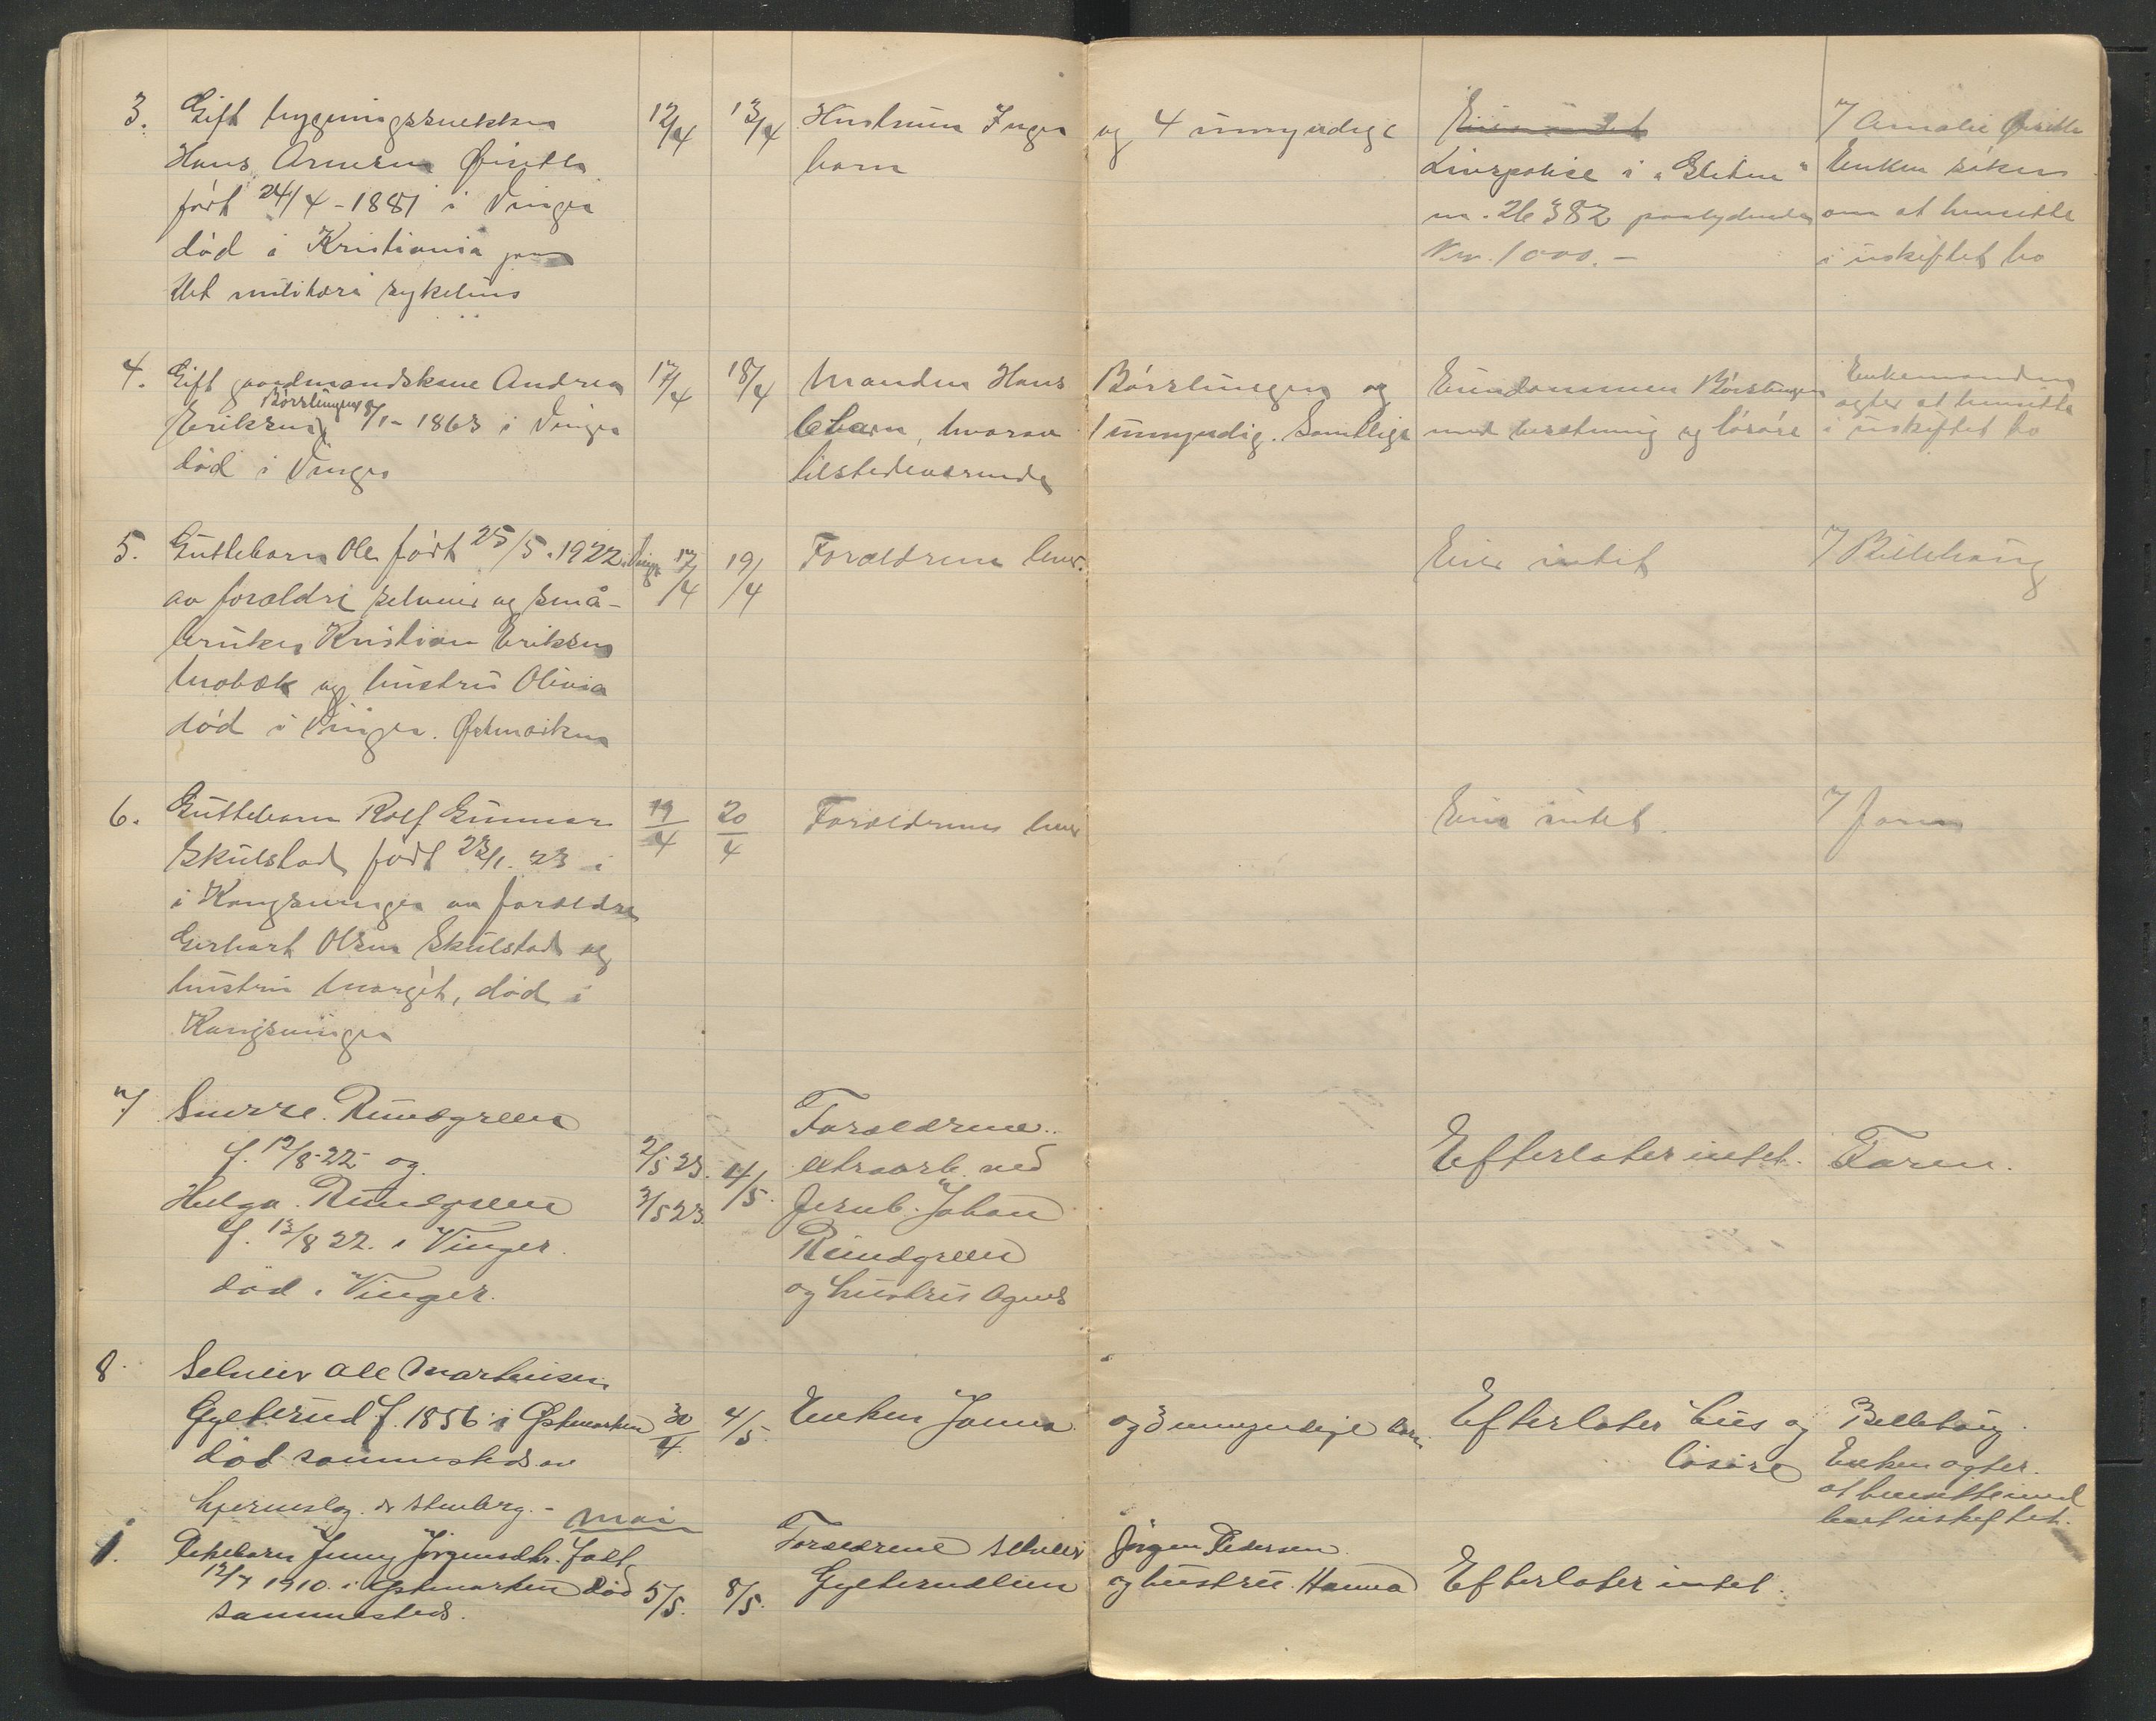 3. Gift bygningssnekker 12/4 13/4 Hustruen Inga og 4 umyndige Eier intet 7 Amalie Øiseth
Hans Arnesen Øiseth barn Livspolise i "Gleten" Enken søker
født 24/4-1881 i Vinger nr. 26382 paalydende om at hensitte
død i Kristiania paa Kr. 1000.- i uskiftet bo
det militære sykehus
4. Gift gaardmandskone Andrea 17/4 18/4 Manden Hans Børslingen og Eiendommen Børslingen Enkemanden
Børslingen agter at hensitte
Eriksen 8/1-1863 i Vinger 6 barn, hvorav 1 umyndig. Samtlige med besetning og løsøre i uskiftet bo
død i Vinger tilstedeværende
5. Guttebarn Ole født 25/5.1922 i Vinger 17/4 19/4 Forældrene lever. Eier intet 7 Billehaug
av forældre selveier og små-
bruker Kristian Eriksen
Mobæk og hustru Olivia
død i Vinger. Østmarken
6. Guttebarn Rolf Gunnar 19/4 20/4 Forældrene lever Eier intet. 7 Faren
Skulstad født 23/1.23 i
i Kongsvinger av forældre
Gerhart Olsen Skulstad og
hustru Margit, død i
Kongsvinger
7 Snorre Rundgreen Forældrene
f. 12/8-22 og 2/5 23. 4/5. ekstraarb. ved Efterlater intet. Faren.
Helga Rundgreen 3/5 23. Jernb. Johan
f. 12/8 22. i Vinger. Rundgreen
død i Vinger. og hustru Agnes
8. Selveier Ole Martinsen
Gylterud f. 1856 i Østmarken 30/4. 4/5. Enken Janna og 3 umyndige barn. Efterlater hus og Billehaug.
død sammesteds av løsøre Enken agter
hjerneslag. dr Stenberg. - at hensitte med
mai boet uskiftet.
1. Pikebarn Jenny Jörgensdtr. født Forældrene selveier Jörgen Pedersen
12/7 1910. i Østmarken død 5/5. 8/5. Gylterudlien og hustru Hanna Efterlater intet.
sammesteds.